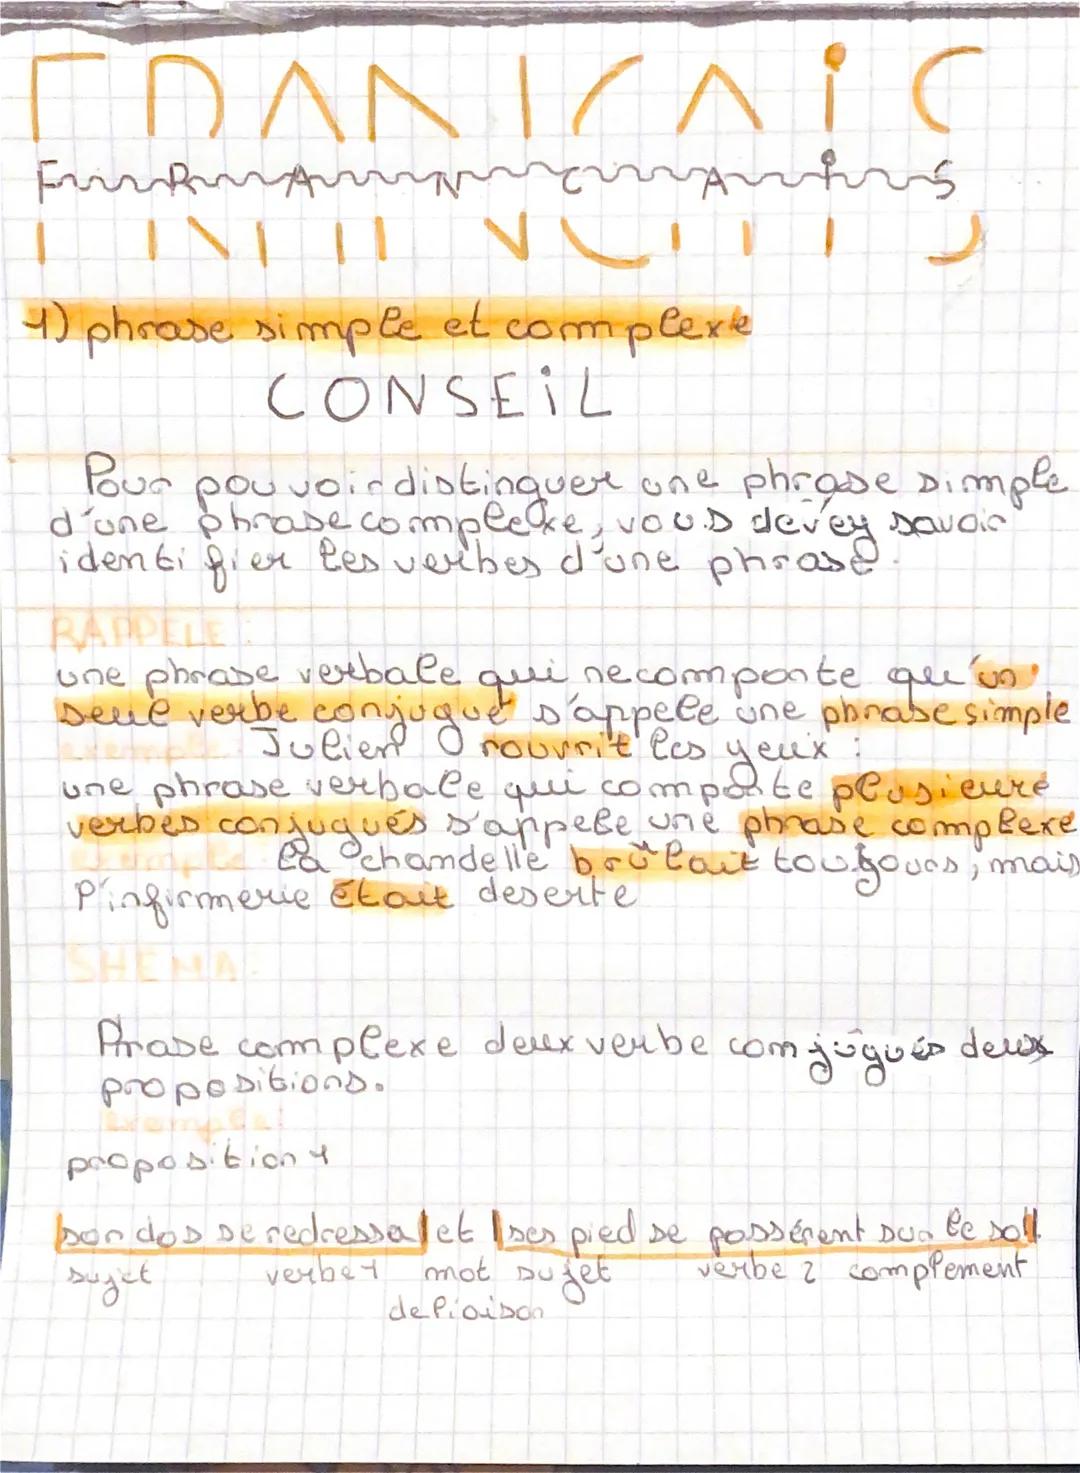 FRANCAIS
1) phrase simple et complexe
CONSEIL
Pour pouvoir distinguer une phrase simple
d'une phrase complexe, vous devey savoir
identifier les verbes d'une phrase.
RAPPELE :
une phrase verbale qui ne comporte qu'un
seul verbe conjugué s'appele une phrase simple
exemple Julien rouvrit les yeux :
une phrase verbale qui comporte plusieurs
verbes conjugués s'appele une phrase complexe
exemple la chandelle brûlait toujours, mais
l'infirmerie était deserte
SHEMA:
Phrase complexe deux verbe conjugués deux
propositions.
exemple:
proposition 1
son dos se redressa et ses pied se possérent sur le sol
sujet verbe 1 mot sujet verbe 2 complement
de liaison